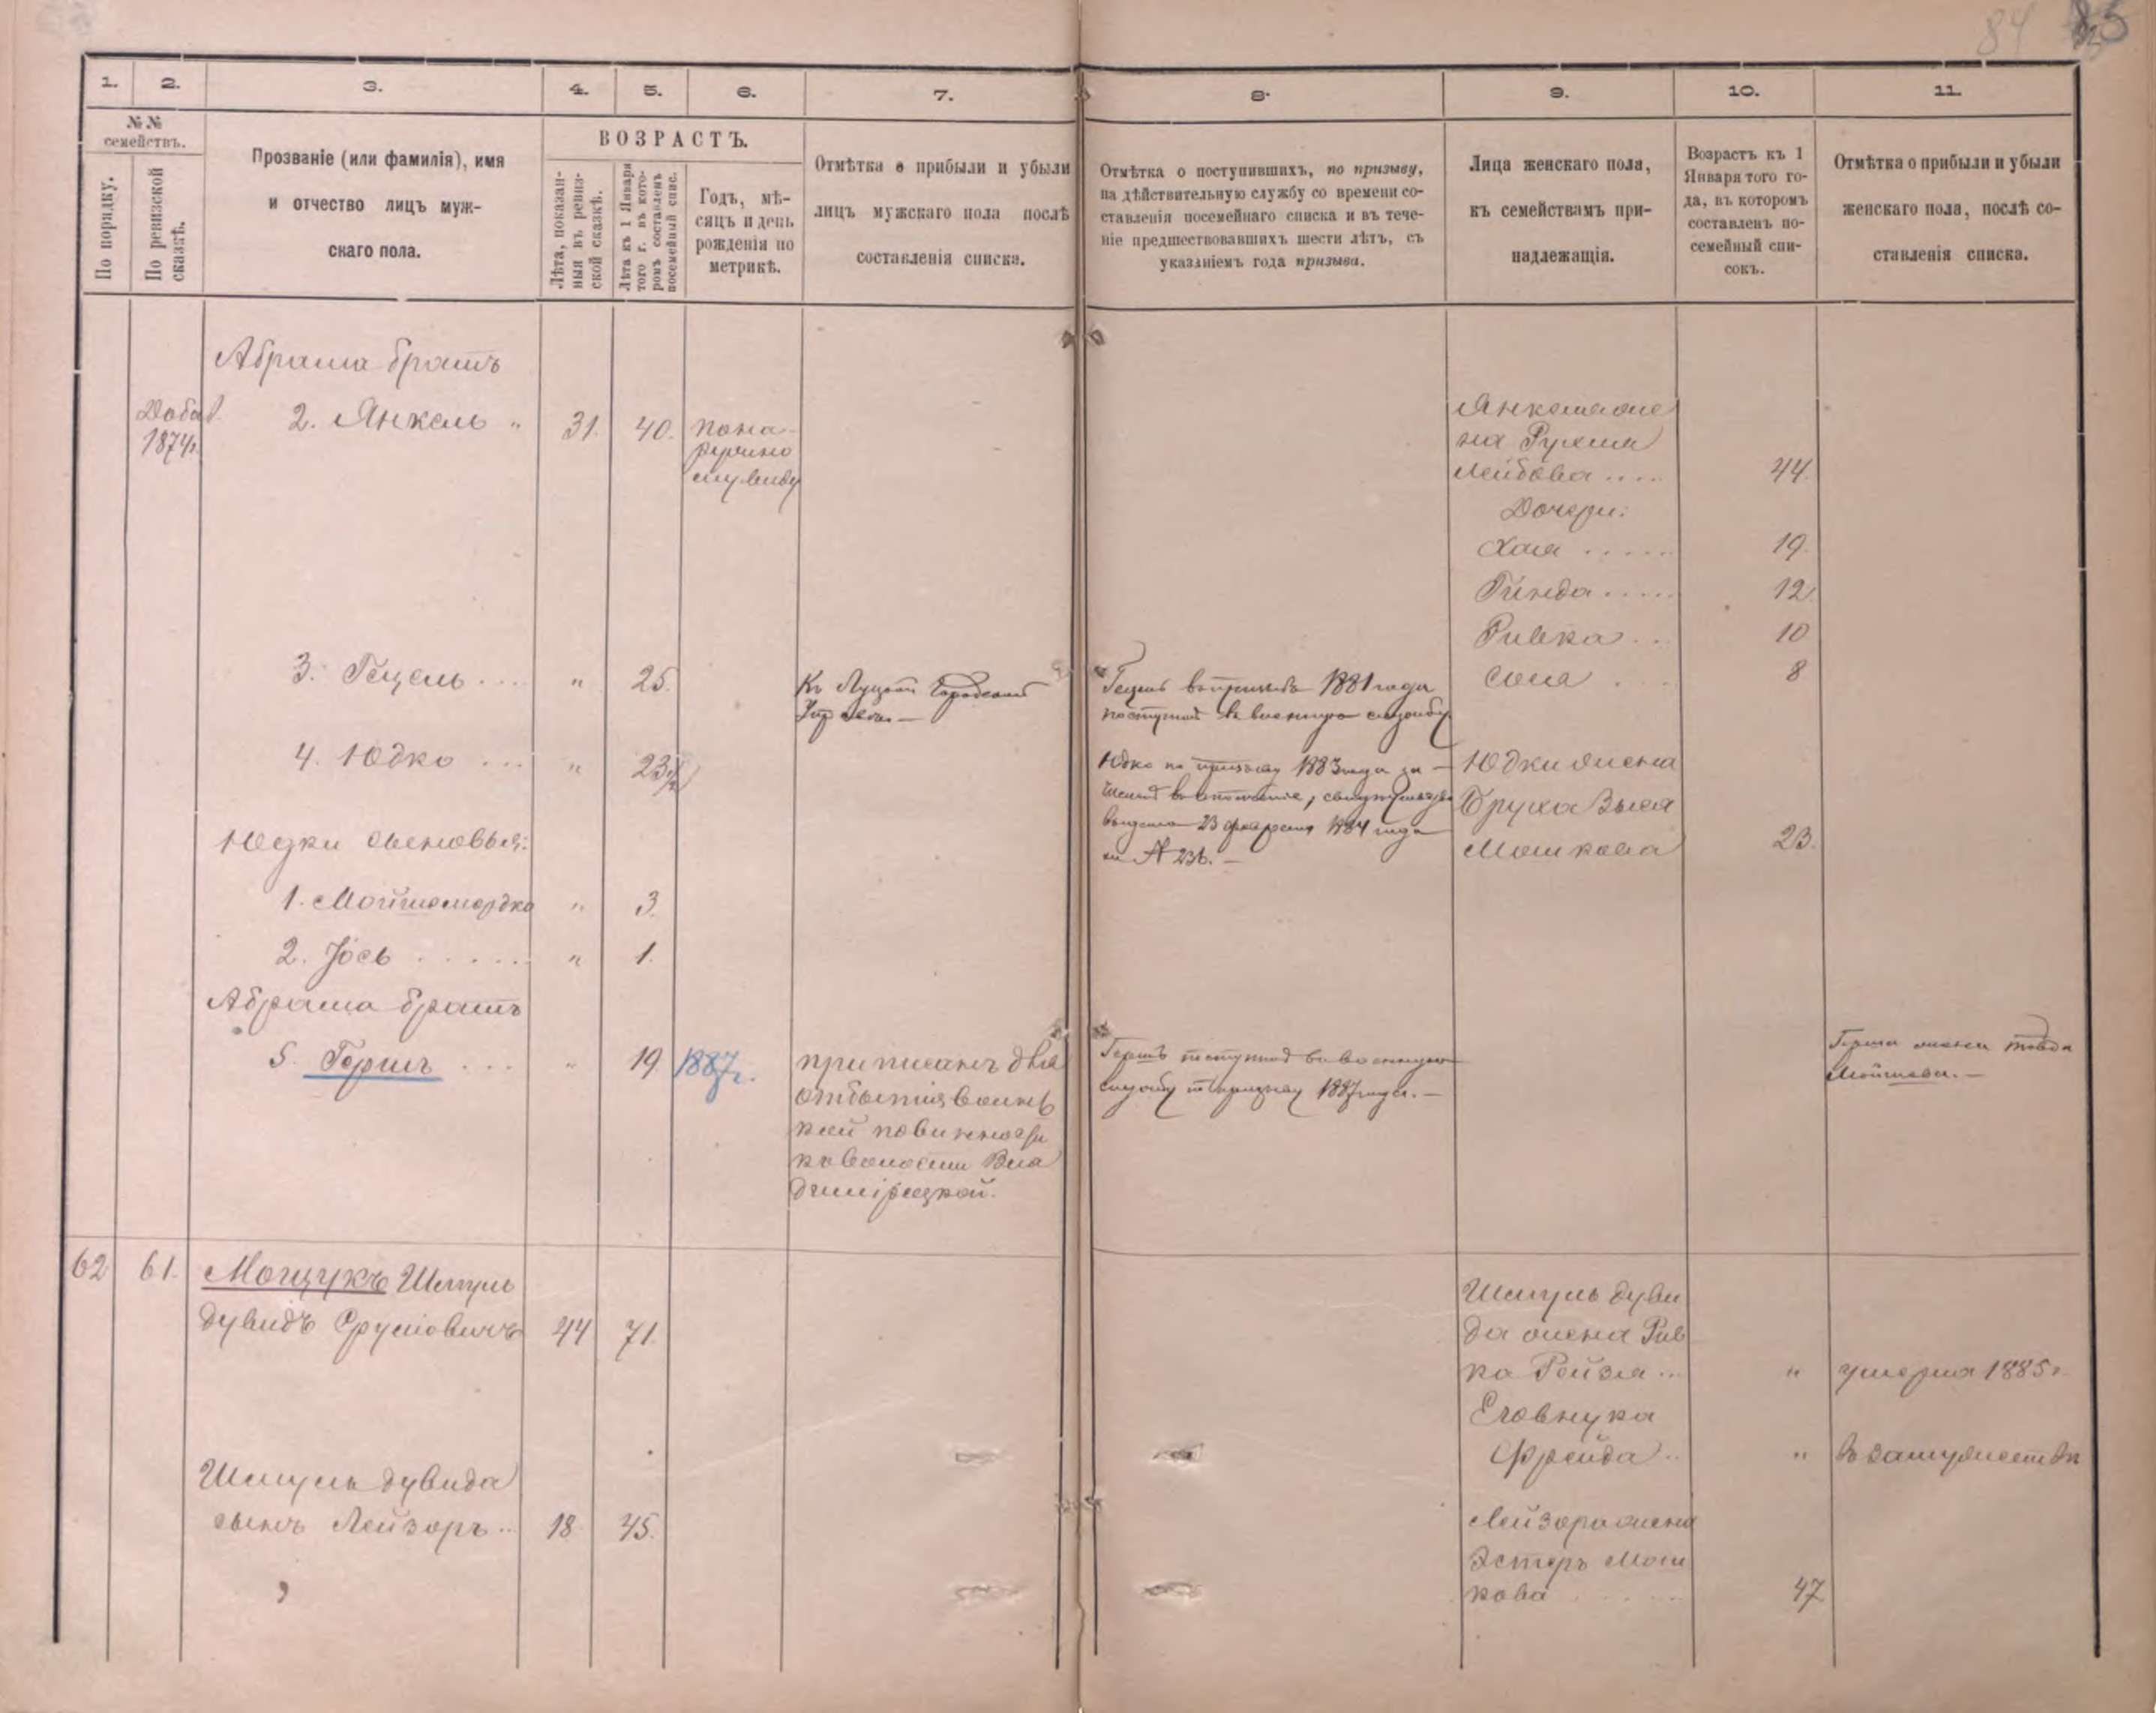 84 85
1. 2. 3. 4. 5. 6. 7. 8. 9. 10. 11.
№№ семействъ.
По порядку.
По ревизской сказкѣ.
Прозваніе (или фамилія), имя
и отчество лицъ муж-
скаго пола.
ВОЗРАСТЪ.
Лѣта, показан-
ныя въ ревиз-
ской сказкѣ.
Лѣта къ 1 Января
того г. въ кото-
ромъ составленъ
посемейный спис.
Годъ, мѣ-
сяцъ и день
рожденія по
метрикѣ.
Отмѣтка о прибыли и убыли
лицъ мужскаго пола послѣ
составленія списка.
Отмѣтка о поступившихъ, по призыву,
на дѣйствительную службу со времени со-
ставленія посемейнаго списка и въ тече-
ніе предшествовавшихъ шести лѣтъ, съ
указаніемъ года призыва.
Лица женскаго пола,
къ семействамъ при-
надлежащія.
Возрастъ къ 1
Января того го-
да, въ которомъ
составленъ по-
семейный спи-
сокъ.
Отмѣтка о прибыли и убыли
женскаго пола, послѣ со-
ставленія списка.
Абрама братъ
Добав.
1874г.
2. Янкель " 31. 40. пона-
ружно
му виду
Янкеля же
на Рухля
Лейбова .... 44.
Дочери:
Хая ..... 19.
Гинда ..... 12.
Ривка ... 10
Сося ... 8
3. Гецель .... " 25.
Къ Луцкой Городской
Управѣ. —
Гецель въ призывъ 1881 года
поступилъ въ военную службу
4. Юдко ... " 23 1/2
Юдко по призыву 1883 года за-
численъ въ ополченіе, свидѣтельство
выдано 23 февраля 1884 года
за № 236. —
Юдки жена
Бруха Зыся
Мошкова 23.
Юдки сыновья:
1. Мойшемордко " 3.
2. Іось ...... " 1.
Абрама братъ
5. Гершъ ... " 19 1887г.
приписанъ для
отбытія воинс
кой повинности
къ волости Вла
димірецкой.
Гершъ поступилъ въ военную
службу по призыву 1887 года. —
Герша жена Товба
Мойшева. —
62 61. Мощукъ Шмуль
дувидъ Сруліовичъ 44 71.
Шмуль дуви
да жена Рив
ка Рейзя ... " умерла 1885г.
Его внука
Фрейда .. " въ замужествѣ
Шмуль дувида
сынъ Лейзоръ .. 18. 45.
Лейзора жена
Эстеръ Мош
кова ...... 47